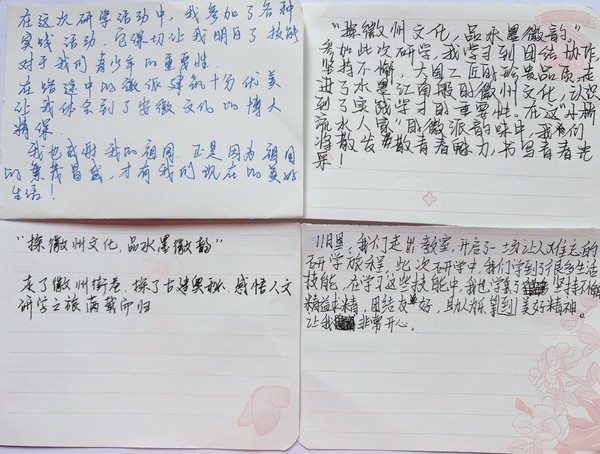 在这次研学活动中，我参加了各种
实践活动，它深切让我明白了技能
对于我们青少年的重要性。
在路途中的徽派建筑十分优美
让我体会到了安徽文化的博大
精深
我也感谢我的祖国，正是因为祖国
的繁荣昌盛，才有我们现在的美好
生活！
"探徽州文化，品水墨徽韵。"
参加此次研学，我学习到团结协作，
坚持不懈，大国工匠的珍贵品质，走
进了水墨江南般的徽州文化，认识
到了实践学习的重要性。在这"小桥
流水人家"的徽派韵味中，我们
将散发青春魅力，书写青春光
果！
"探徽州文化，品水墨徽韵"
走了徽州街巷，探了古建奥秘，感悟人文
研学之旅满载而归
11月里，我们走出教室，开启了一场让人难忘的
研学旅程，此次研学中，我们学到了很多生活
技能，在学习这些技能中，我也学习了坚持不懈
精益求精，团结友好，助人为乐等美好精神。
让我非常开心。